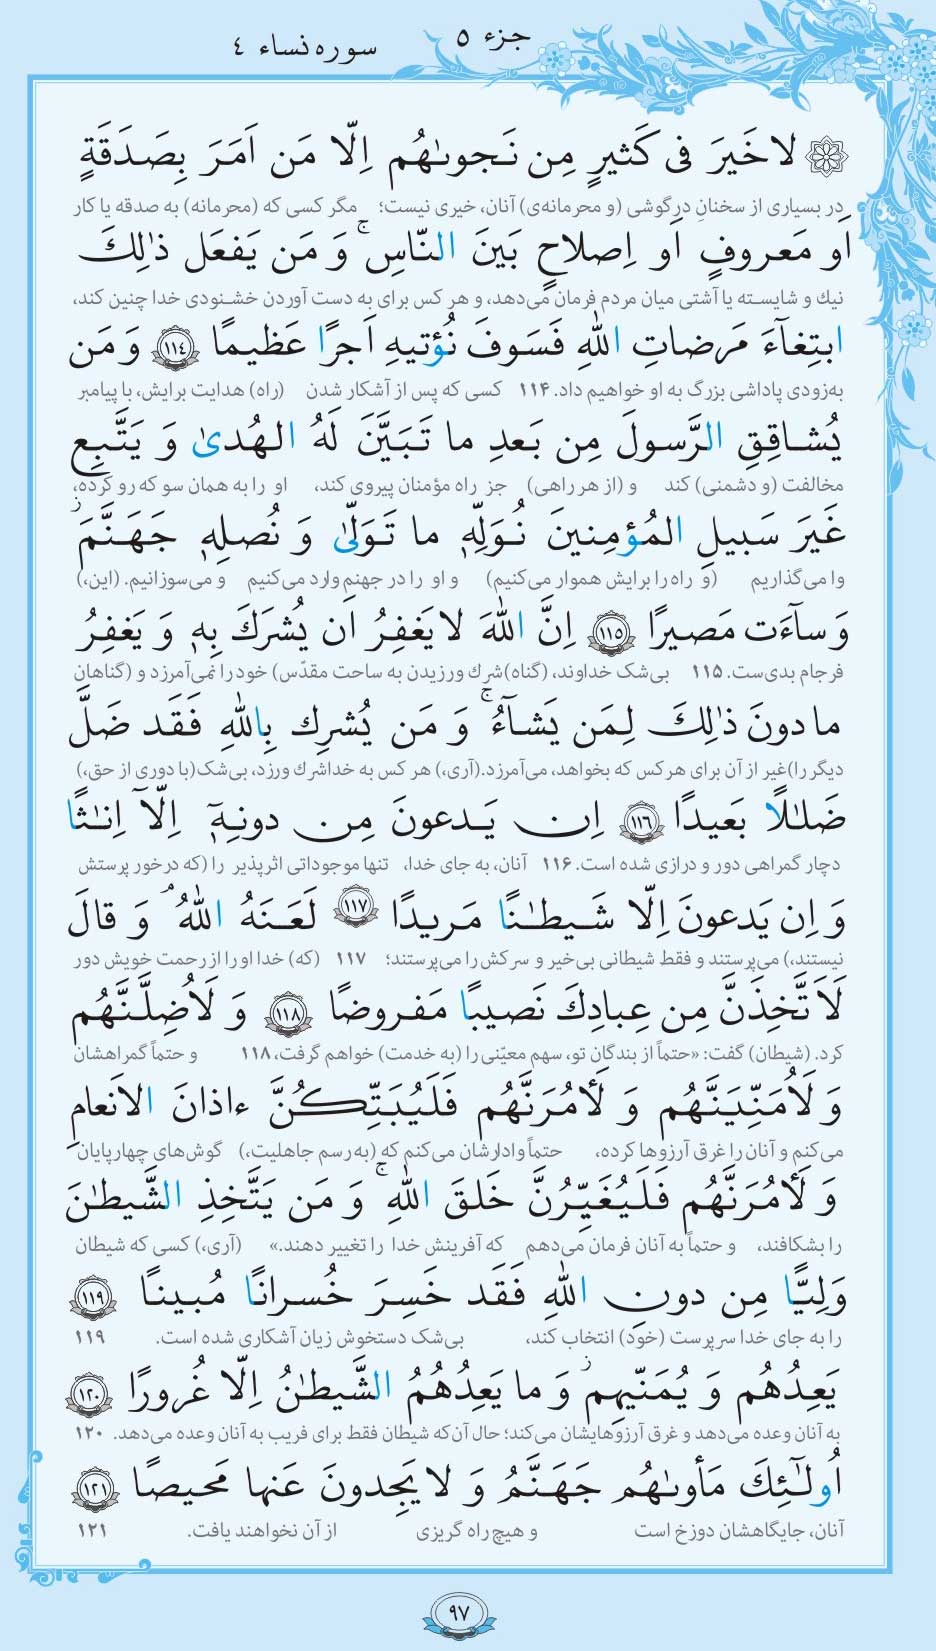 جزء ٥
سوره نساء ٤
لا خَیرَ فی کَثیرٍ مِن نَجویٰهُم اِلّا مَن اَمَرَ بِصَدَقَةٍ
در بسیاری از سخنانِ درگوشی (و محرمانه‌ی) آنان، خیری نیست؛ مگر کسی که (محرمانه) به صدقه یا کار
اَو مَعروفٍ اَو اِصلاحٍ بَینَ النّاسِ ۚ وَ مَن یَفعَل ذٰلِكَ
نیك و شایسته یا آشتی میان مردم فرمان می‌دهد، و هر کس برای به دست آوردن خشنودی خدا چنین کند،
ابتِغآءَ مَرضاتِ اللّٰهِ فَسَوفَ نُؤتیهِ اَجرًا عَظیمًا ﴿١١٤﴾ وَ مَن
به‌زودی پاداشی بزرگ به او خواهیم داد. ۱۱۴ کسی که پس از آشکار شدن (راه) هدایت برایش، با پیامبر
یُشاقِقِ الرَّسولَ مِن بَعدِ ما تَبَیَّنَ لَهُ الهُدیٰ وَ یَتَّبِع
مخالفت (و دشمنی) کند و (از هر راهی) جز راه مؤمنان پیروی کند، او را به همان سو که رو کرده،
غَیرَ سَبیلِ المُؤمِنینَ نُوَلِّهٖ ما تَوَلّیٰ وَ نُصلِهٖ جَهَنَّمَ ز
وا می‌گذاریم (و راه را برایش هموار می‌کنیم) و او را در جهنم وارد می‌کنیم و می‌سوزانیم. (این،)
وَ سآءَت مَصیرًا ﴿١١٥﴾ اِنَّ اللّٰهَ لا یَغفِرُ اَن یُشرَكَ بِهٖ وَ یَغفِرُ
فرجام بدی‌ست. ۱۱۵ بی‌شک خداوند، (گناه)شرك ورزیدن به ساحت مقدّس) خود را نمی‌آمرزد و (گناهان
ما دونَ ذٰلِكَ لِمَن یَشآءُ ۚ وَ مَن یُشرِك بِاللّٰهِ فَقَد ضَلَّ
دیگر را)غیر از آن برای هر کس که بخواهد، می‌آمرزد.(آری،) هر کس به خداشرك ورزد، بی‌شک(با دوری از حق،)
ضَلٰلًا بَعیدًا ﴿١١٦﴾ اِن یَدعونَ مِن دونِهٖٓ اِلّآ اِنٰثًا
دچار گمراهی دور و درازی شده است. ۱۱۶ آنان، به جای خدا، تنها موجوداتی اثرپذیر را (که درخور پرستش
وَ اِن یَدعونَ اِلّا شَیطٰنًا مَریدًا ﴿١١٧﴾ لَعَنَهُ اللّٰهُ ۘ وَ قالَ
نیستند،) می‌پرستند و فقط شیطانی بی‌خیر و سرکش را می‌پرستند؛ ۱۱۷ (که) خدا او را از رحمت خویش دور
لَاَتَّخِذَنَّ مِن عِبادِكَ نَصیبًا مَفروضًا ﴿١١٨﴾ وَ لَاُضِلَّنَّهُم
کرد. (شیطان) گفت: «حتماً از بندگان تو، سهم معیّنی را (به خدمت) خواهم گرفت، ۱۱۸ و حتماً گمراهشان
وَ لَاُمَنِّیَنَّهُم وَ لَأمُرَنَّهُم فَلَیُبَتِّکُنَّ ءاذانَ الاَنعامِ
می‌کنم و آنان را غرق آرزوها کرده، حتماً وادارشان می‌کنم که (به رسم جاهلیت،) گوش‌های چهارپایان
وَ لَأمُرَنَّهُم فَلَیُغَیِّرُنَّ خَلقَ اللّٰهِ ۚ وَ مَن یَتَّخِذِ الشَّیطٰنَ
را بشکافند، و حتماً به آنان فرمان می‌دهم که آفرینش خدا را تغییر دهند.» (آری،) کسی که شیطان
وَلِیًّا مِن دونِ اللّٰهِ فَقَد خَسِرَ خُسرانًا مُبینًا ﴿١١٩﴾
را به جای خدا سرپرست (خود) انتخاب کند، بی‌شک دستخوش زیان آشکاری شده است. ۱۱۹
یَعِدُهُم وَ یُمَنّیهِم ز وَ ما یَعِدُهُمُ الشَّیطٰنُ اِلّا غُرورًا ﴿١٢٠﴾
به آنان وعده می‌دهد و غرق آرزوهایشان می‌کند؛ حال آن‌که شیطان فقط برای فریب به آنان وعده می‌دهد. ۱۲۰
اُولٰٓئِكَ مَأویٰهُم جَهَنَّمُ وَ لا یَجِدونَ عَنها مَحیصًا ﴿١٢١﴾
آنان، جایگاهشان دوزخ است و هیچ راه گریزی از آن نخواهند یافت. ۱۲۱
٩٧